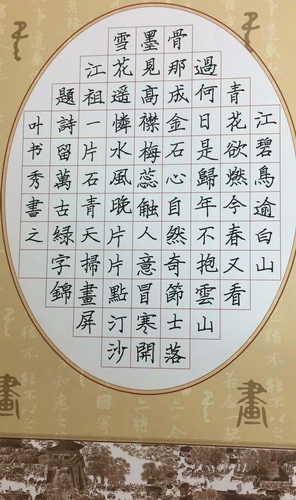 江碧鳥逾白山
青花欲燃今春又看
過何日是歸年不抱雲山
骨那成金石心自然奇節士落
墨見高襟梅蕊触人意冒寒開
雪花遥憐水風晚片片點汀沙
江祖一片石青天掃畫屏
題詩留萬古緑字錦
叶书秀書之
畫
畫